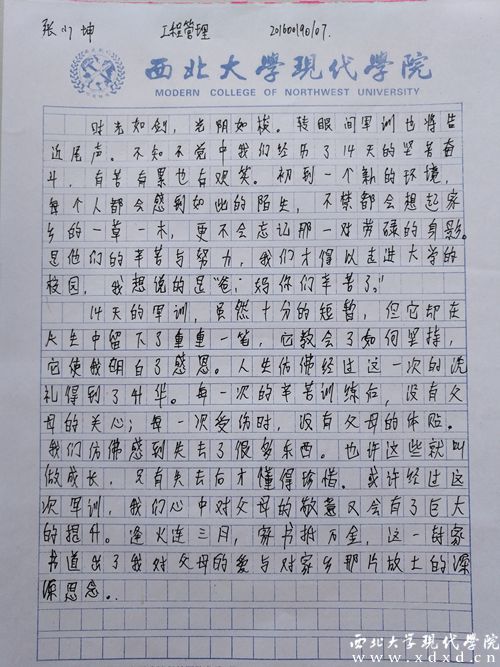 张小坤 工程管理 20160090107.
西北大学现代学院
MODERN COLLEGE OF NORTHWEST UNIVERSITY
时光如剑，光阴如梭。转眼间军训也将告
近尾声。不知不觉中我们经历了14天的坚苦奋
斗，有苦有累也有欢笑。初到一个新的环境，
每个人都会感到如此的陌生，不禁都会想起家
乡的一草一木，更不会忘记那一对劳碌的身影。
是他们的辛苦与努力，我们才得以走进大学的
校园，我想说的是“爸，妈你们辛苦了。”
14天的军训，虽然十分的短暂，但它却在
人生中留下了重重一笔，它教会了如何坚持，
它使我明白了感恩。人生仿佛经过这一次的洗
礼得到了升华。每一次的辛苦训练后，没有父
母的关心；每一次受伤时，没有父母的体贴。
我们仿佛感到失去了很多东西。也许这些就叫
做成长，只有失去后才懂得珍惜。或许经过这
次军训，我们心中对父母的敬意又会有了巨大
的提升。烽火连三月，家书抵万金，这一封家
书道出了我对父母的爱与对家乡那片故土的深
深思念。
西北大学现代学院
www.xdxd.cn